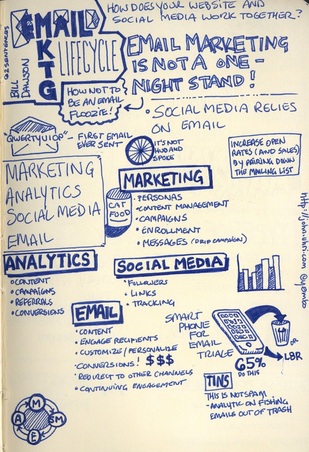 HOW DOES YOUR WEBSITE AND
SOCIAL MEDIA WORK TOGETHER?
EMAIL
MKTG
LIFECYCLE
BILL
DAWSON
HOW NOT TO
BE AN EMAIL
FLOOZIE!
EMAIL MARKETING
IS NOT A ONE-
NIGHT STAND!
• SOCIAL MEDIA RELIES
ON EMAIL
"QWERTYUIOP"
- FIRST EMAIL
EVER SENT
IT'S NOT
HUB AND
SPOKE
INCREASE OPEN
RATES (AND SALES)
BY PEARING DOWN
THE MAILING LIST
MARKETING
ANALYTICS
SOCIAL MEDIA
EMAIL
CAT
FOOD
MARKETING
• PERSONAS
• CONTENT MANAGEMENT
• CAMPAIGNS
• ENROLLMENT
• MESSAGES (DRIP CAMPAIGN)
ANALYTICS
• CONTENT
• CAMPAIGNS
• REFERRALS
• CONVERSIONS
SOCIAL MEDIA
• FOLLOWERS
• LINKS
• TRACKING
EMAIL
• CONTENT
• ENGAGE RECIPIENTS
• CUSTOMIZE/PERSONALIZE
• CONVERSIONS! $$$
• REDIRECT TO OTHER CHANNELS
• CONTINUING ENGAGEMENT
SMART
PHONE
FOR
EMAIL
TRIAGE
OR
LBR
65%
DO THIS
TINS
THIS IS NOT SPAM
- ANALYTIC ON FISHING
EMAILS OUT OF TRASH
M
SM
E
A